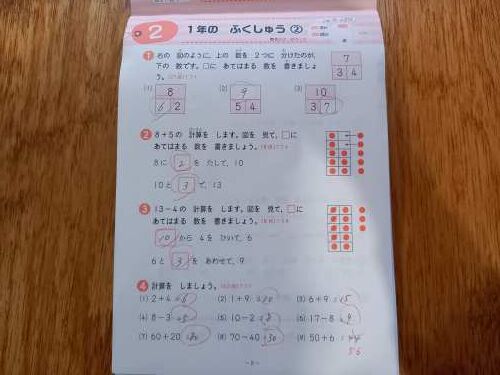 2 1年の ふくしゅう ②
1 右の 図のように、上の 数を 2つに 分けたのが、
下の 数です。□に あてはまる 数を 書きましょ
う。
7
3 4
(1) 8
6 2
(2) 9
5 4
(3) 10
3 7
2 8+5の 計算を します。図を 見て、□に
あてはまる 数を 書きましょう。
8に 2 を たして、10
10と 3 で、13
3 13-4の 計算を します。図を 見て、□に
あてはまる 数を 書きましょう。
10 から 4を ひいて、6
6と 3 を あわせて、9
4 計算を しましょう。
(1) 2+4=6 (2) 1+9=10 (3) 6+9=15
(4) 8-3=5 (5) 10-2=8 (6) 17-8=9
(7) 60+20=80 (8) 70-40=30 (9) 50+6=
56